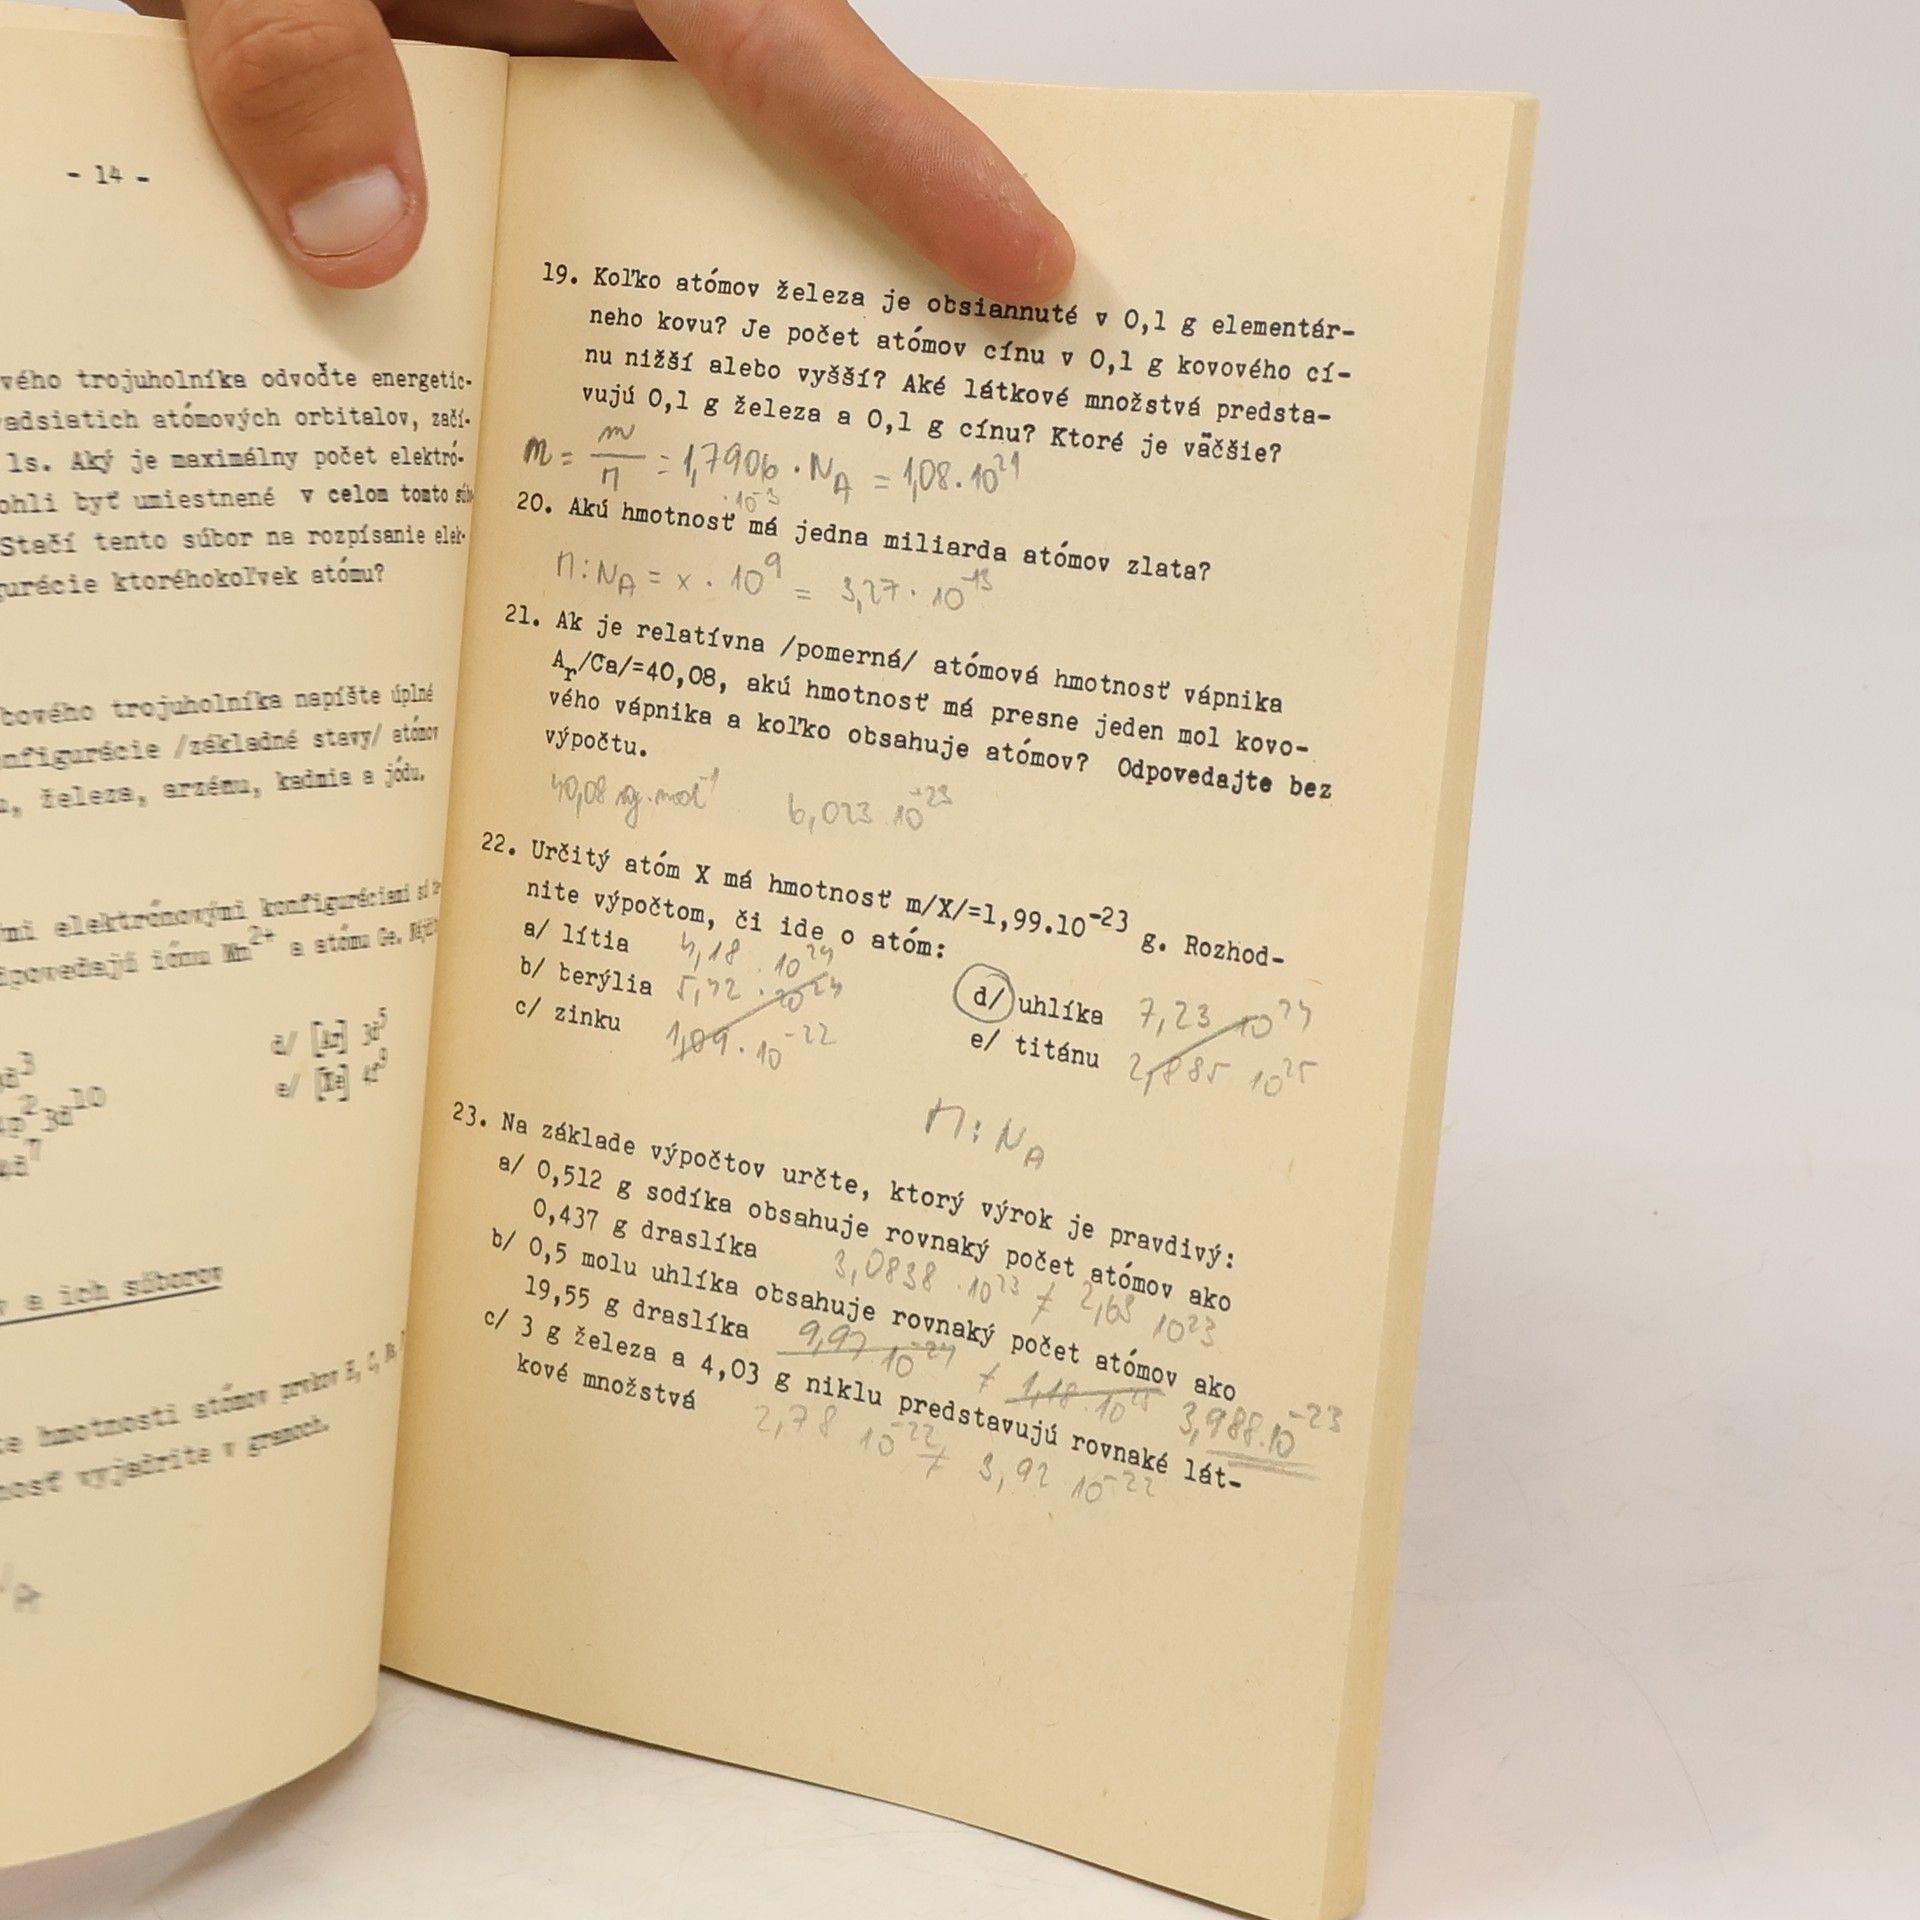 - 14 -
vého trojuholníka odvoďte energetic-
adsiatich atómových orbitalov, začí-
1s. Aký je maximálny počet elektró-
ohli byť umiestnené v celom tomto
Stačí tento súbor na rozpísanie elek-
gurácie ktoréhokoľvek atómu?
bového trojuholníka napíšte úplné
nfigurácie /základné stavy/ atómov
železa, arzému, kadmia a jódu.
mi elektrónovými konfiguráciami sú
dpovedajú iónu Mn2+ a atómu Ge.
d/ [Ar] 3d5
e/ [Xe] 4f9
a ich súborov
te hmotnosti atómov prvkov H, C,
nosť vyjadrite v gramoch.
A
19. Koľko atómov železa je obsiahnuté v 0,1 g elementár-
neho kovu? Je počet atómov cínu v 0,1 g kovového cí-
nu nižší alebo vyšší? Aké látkové množstvá predsta-
vujú 0,1 g železa a 0,1 g cínu? Ktoré je väčšie?
m = m/M = 1,7906 · NA = 1,08 · 10^21
· 10^-3
20. Akú hmotnosť má jedna miliarda atómov zlata?
M : NA = x · 10^9 = 3,27 · 10^-13
21. Ak je relatívna /pomerná/ atómová hmotnosť vápnika
Ar/Ca/=40,08, akú hmotnosť má presne jeden mol kovo-
vého vápnika a koľko obsahuje atómov? Odpovedajte bez
výpočtu.
40,08 g·mol^-1 6,023 10^-23
22. Určitý atóm X má hmotnosť m/X/=1,99.10^-23 g. Rozhod-
nite výpočtom, či ide o atóm:
a/ lítia 4,18 · 10^24
b/ berýlia 5,42 · 10^24
c/ zinku 1,09 · 10^-22
d/ uhlíka 7,23 10^24
e/ titánu 2,885 10^25
M : NA
23. Na základe výpočtov určte, ktorý výrok je pravdivý:
a/ 0,512 g sodíka obsahuje rovnaký počet atómov ako
0,437 g draslíka 3,0838 · 10^23 ≠ 2,63 10^23
b/ 0,5 molu uhlíka obsahuje rovnaký počet atómov ako
19,55 g draslíka 9,97 10^-24 ≠ 1,18 · 10^25 3,988.10^-23
c/ 3 g železa a 4,03 g niklu predstavujú rovnaké lát-
kové množstvá 2,78 10^-22 ≠ 3,92 10^-22